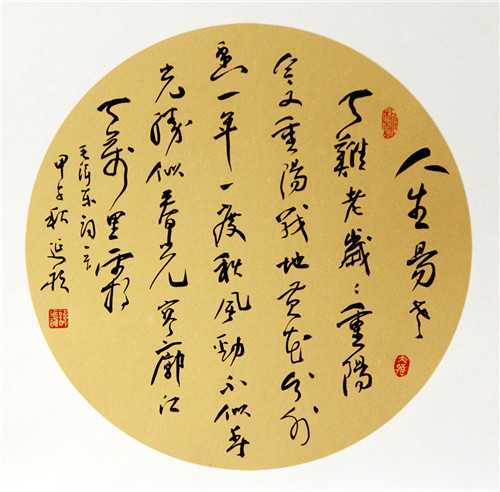 人生易老
天難老歲々重陽
今又重陽戰地黃花分外
香一年一度秋風勁不似春
光勝似春光寥廓江
天萬里霜
毛澤東詞一首
甲午秋